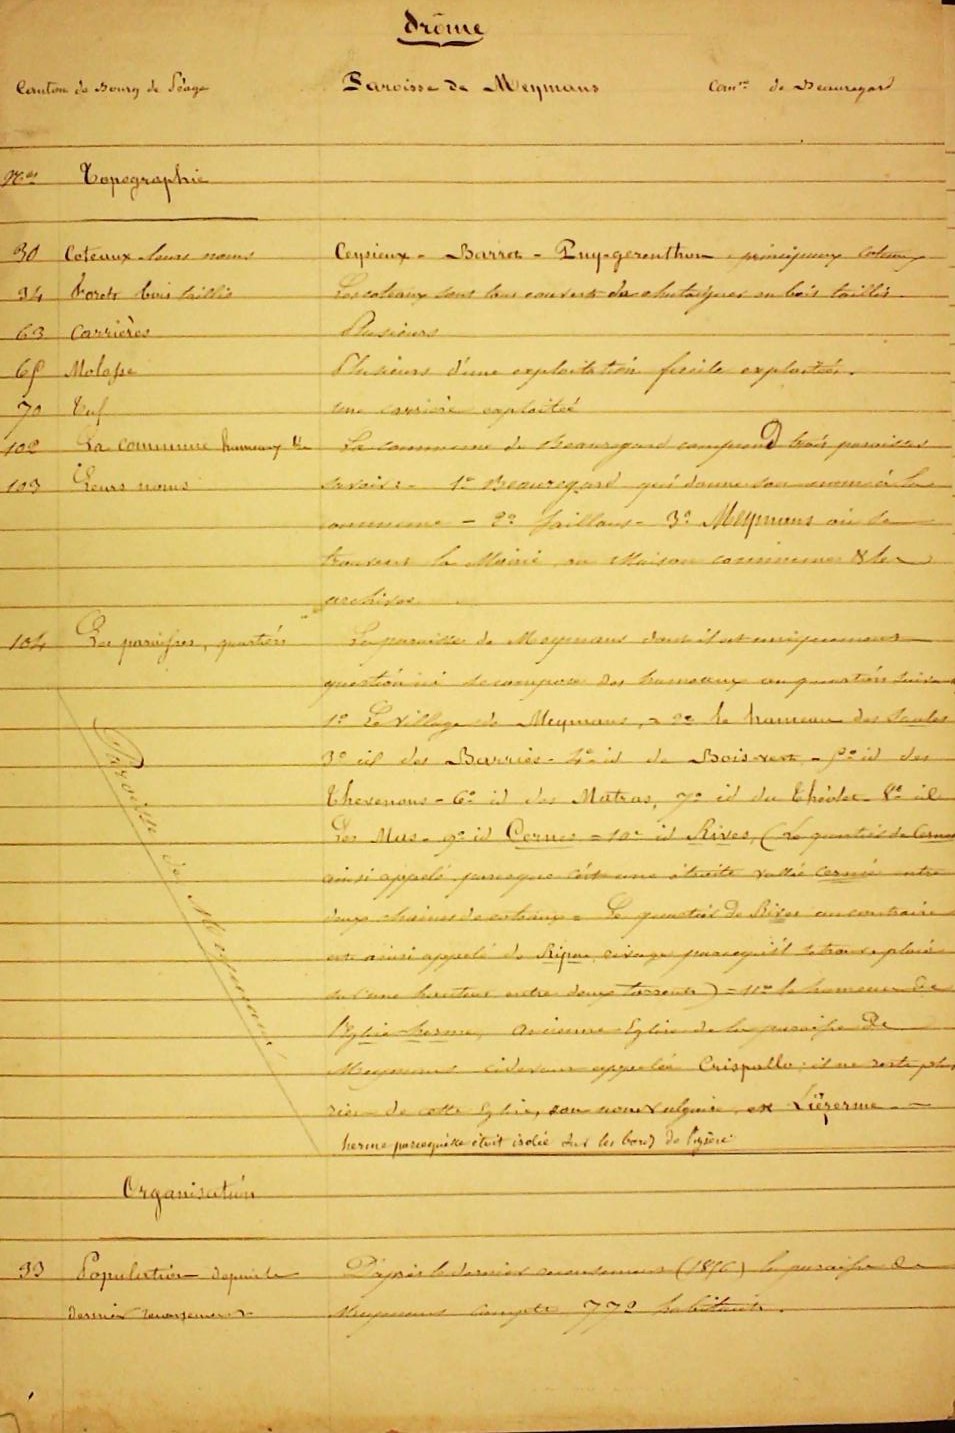 Drôme
Canton de Bourg de Péage Paroisse de Meymans Com.ne de Beauregard
Nos Topographie
30 Coteaux - leurs noms Ceysieux - Barret - Puy-geronthon, principaux coteaux
34 Forêts bois taillis Les coteaux sont tous couverts de chataigners en bois taillis.
63 Carrières Plusieurs
65 Molasse Plusieurs d'une exploitation facile exploitées.
70 Tuf une carrière exploitée
102 La commune hameaux La commune de Beauregard comprend trois paroisses
103 Leurs noms savoir :- 1º Beauregard qui donne son nom à la
commune - 2º Jaillans - 3º Meymans où se
trouvent la Mairie, ou Maison commune & les
archives
104 Les paroisses, quartiers La paroisse de Meymans dont il est uniquement
question ici se compose des hameaux ou quartiers
1º Le village de Meymans, = 2º le hameau des
3º id des Barriès - 4º id de Bois-vert - 5º id des
Thevenons - 6º id des Matras, 7º id du - 8º id
Les Mus - 9º id Cernes = 10º id Rives, (Le quartier de Cernes
ainsi appelé parceque c'est une étroite vallée cernée entre
deux chaines de coteaux = Le quartier de Rives au contraire
est ainsi appelé de Ripa, rivage parcequ'il se trouve placé
sur une hauteur entre deux torrents) = 11º le hameau de
l'Eglise-herme, ancienne Eglise de la paroisse de
Meymans cidevant appelée Crispalla; il ne reste plus
rien de cette Eglise, son nom vulgaire, est Liéserme -
herme parcequ'elle était isolée sur les bords de l'Isère
Paroisse de Meymans
Organisation
33 Population d'après le D'après le dernier recensement (1896) la paroisse de
dernier recensement Meymans compte 772 habitants.